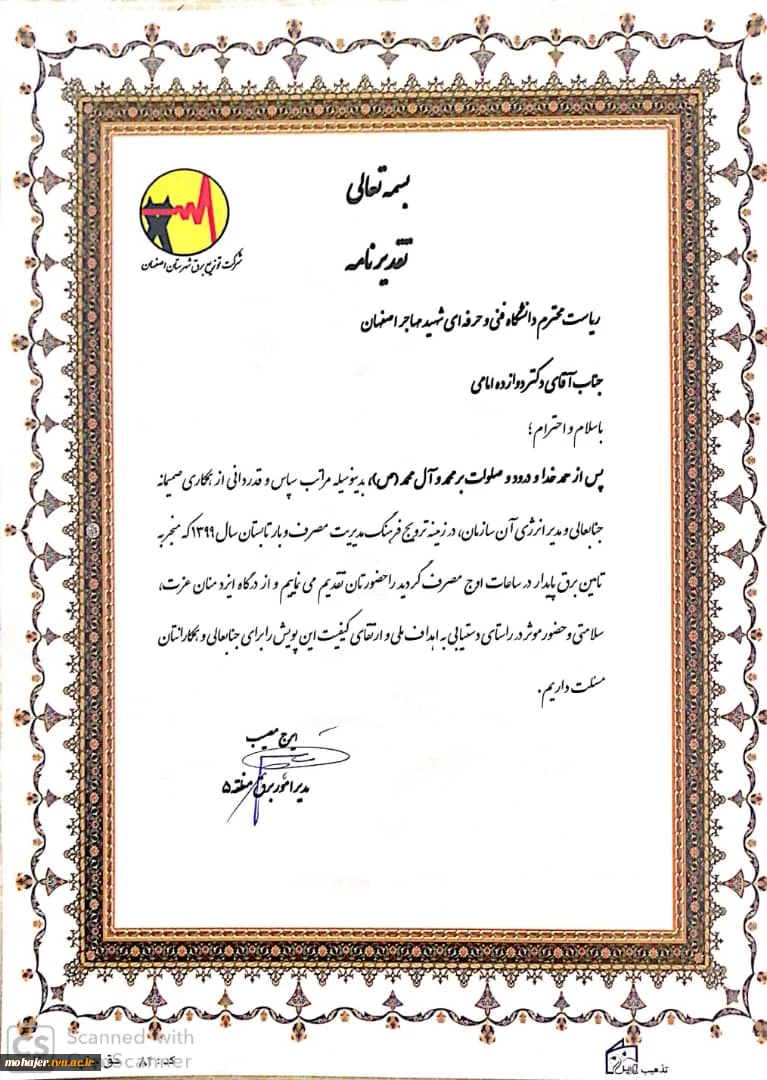 بسمه تعالی
شرکت توزیع برق شهرستان اصفهان
تقدیرنامه
ریاست محترم دانشگاه فنی و حرفه ای شهید مهاجر اصفهان
جناب آقای دکتر دوازده امامی
باسلام و احترام؛
پس از حمد خدا و درود و صلوات بر محمد و آل محمد (ص)، بدینوسیله مراتب سپاس و قدردانی از همکاری صمیمانه
جنابعالی و مدیر انرژی آن سازمان، در زمینه ترویج فرهنگ مدیریت مصرف و بار تابستان سال ۱۳۹۹ که منجر به
تامین برق پایدار در ساعات اوج مصرف گردید را حضورتان تقدیم می نماییم و از درگاه ایزد منان عزت،
سلامتی و حضور موثر در راستای دستیابی به اهداف ملی و ارتقای کیفیت این پویش را برای جنابعالی و همکارانتان
مسئلت داریم.
ایرج معیب
مدیر امور برق منطقه ۵
CS Scanned with
CamScanner
mohajer.tvu.ac.ir
کد: ۸۲
تذهیب